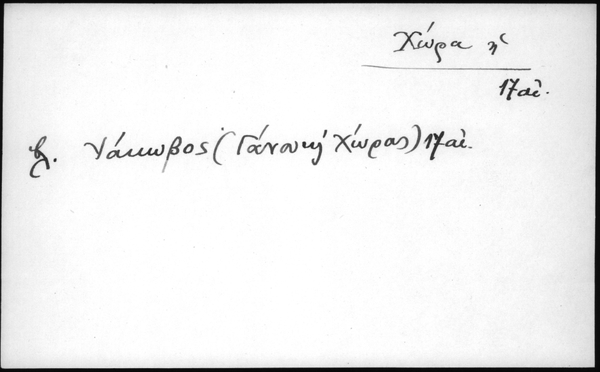 Χώρα ἡ
17 αἰ.
βλ. Ἰάκωβος (Γάνου καὶ Χώρας) 17 αἰ.